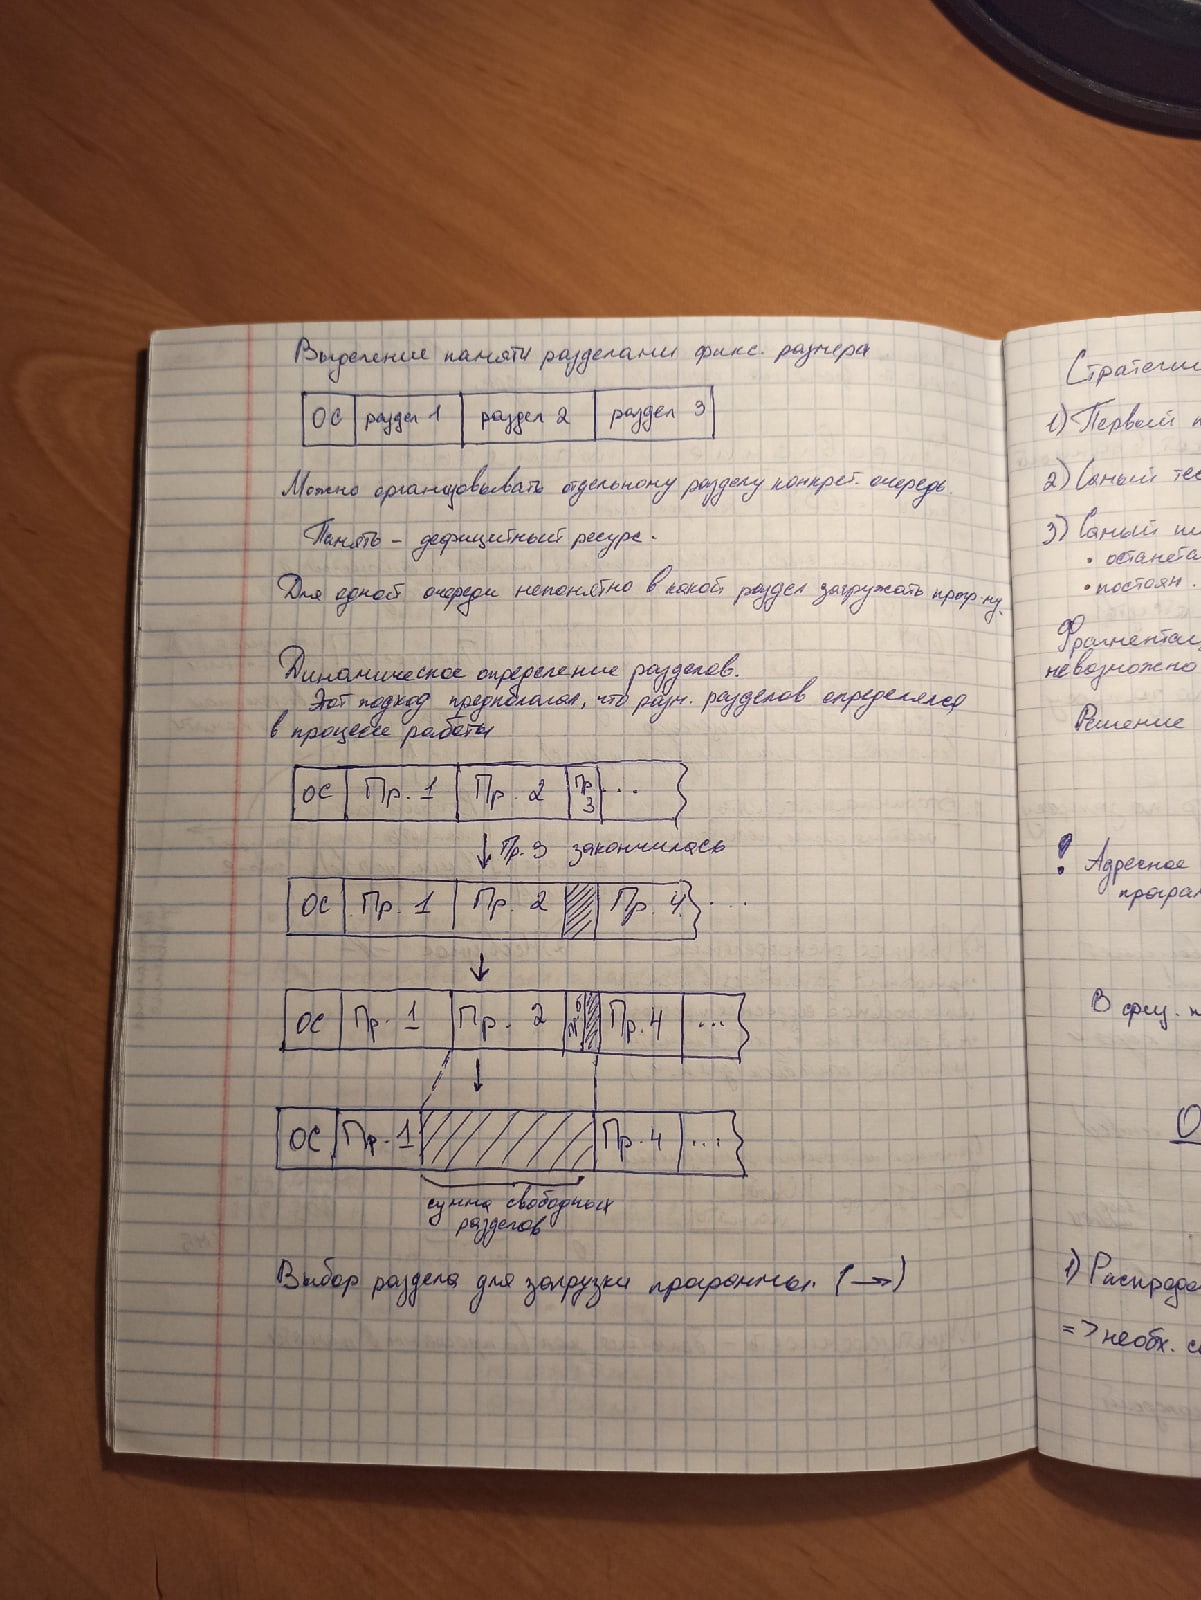 Выделение памяти разделами фикс. размера
ОС раздел 1 раздел 2 раздел 3
Можно организовывать отдельному разделу конкрет. очередь.
Память - дефицитный ресурс.
Для одной очереди непонятно в какой раздел загружать прогр-му.
Динамическое определение разделов.
Этот подход предполагал, что разм. разделов определялся
в процессе работы
ОС Пр. 1 Пр. 2 Пр 3 ...
↓ Пр. 3 закончилась
ОС Пр. 1 Пр. 2 Пр. 4 ...
↓
ОС Пр. 1 Пр. 2 Пр. 4 ...
↓
ОС Пр. 1 Пр. 4 ...
сумма свободных
разделов
Выбор раздела для загрузки программы. (→)
Стратегии
1) Первый п
2) Самый тес
3) Самый
• остаета
• постоян.
Фрагментац
невозможно
Решение
! Адресное
програм
В
О
1) Распреде
=> необх. с